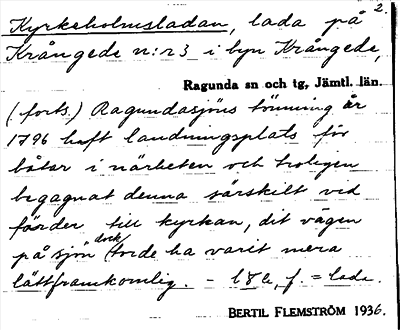 2.
Kyrkeholmsladan, lada på
Krångede n:r 3 i byn Krångede,
Ragunda sn och tg, Jämtl. län.
(forts.) Ragundasjöns tömning år
1796 haft landningsplats för
båtar i närheten och troligen
begagnat denna särskilt vid
färder till kyrkan, dit vägen
på sjön dock torde ha varit mera
lättframkomlig. - f. = lada.
BERTIL FLEMSTRÖM 1936.